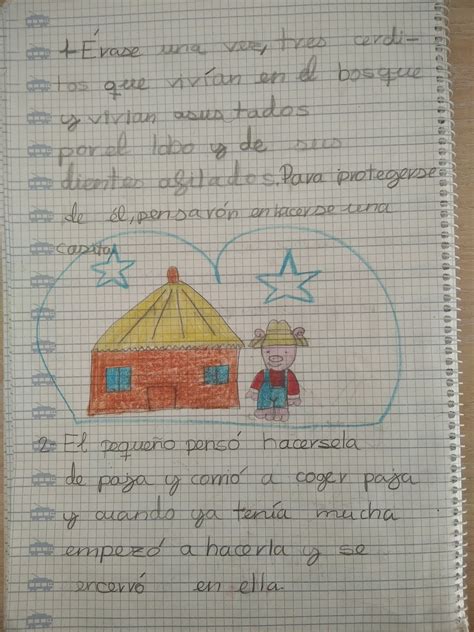 1-Érase una vez, tres cerdi-
tos que vivían en el bosque
y vivian asustados
por el lobo y de sus
dientes afilados. Para protegerse
de él, pensarón en hacerse una
casita.
2- El pequeño pensó hacersela
de paja y corrió a coger paja
y cuando ya tenía mucha
empezó a hacerla y se
encerró en ella.